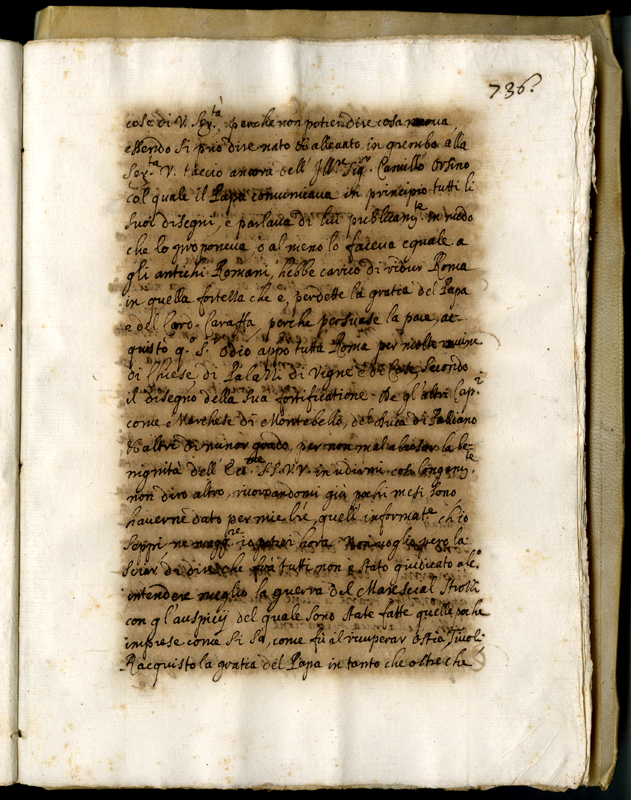 736.
cose di V. Ser.tà, perche non potrei dire cosa nuova
essendo si può dire nato et allevato in grembo alla
Ser.tà V. taccio ancora dell' Ill.re Sig.r Camillo Orsino
col quale il Papa comunicava in principio tutti li
suoi disegni, e parlava di lui in modo
che lo proponeva o al meno lo faceva equale a
gli antichi Romani, hebbe carico di ridur Roma
in quella fortezza che è, perdette la gratia del Papa
e del Card. Caraffa, perche persuase la pace, ac-
quistò q.o S.r odio appo tutta Roma per molte ruine
di Chiese, di Palazzi di Vigne e di Case, secondo
il disegno della sua fortificatione. De gl'altri Cap.i
come Marchese di Montebello, del Duca di Palliano
et altri di minor grado, per non mal abusar la be-
nignità dell' S.S. V.V. in udirmi così longam.te
non dirò altro, ricordandomi già pochi mesi sono
haverne dato per mie lr̃e, quell' informat.e ch'io
seppi ne magg.re io potrei hora. Non voglio però la
sciar di dire che frà tutti non è stato giudicato alc.o
intendere meglio la guerra del Marescial Strozzi
con gl'auspicij del quale sono state fatte quelle poche
imprese come si sà, come fù il ricuperar Ostia, Tivoli
Racquistò la gratia del Papa in tanto che oltre che